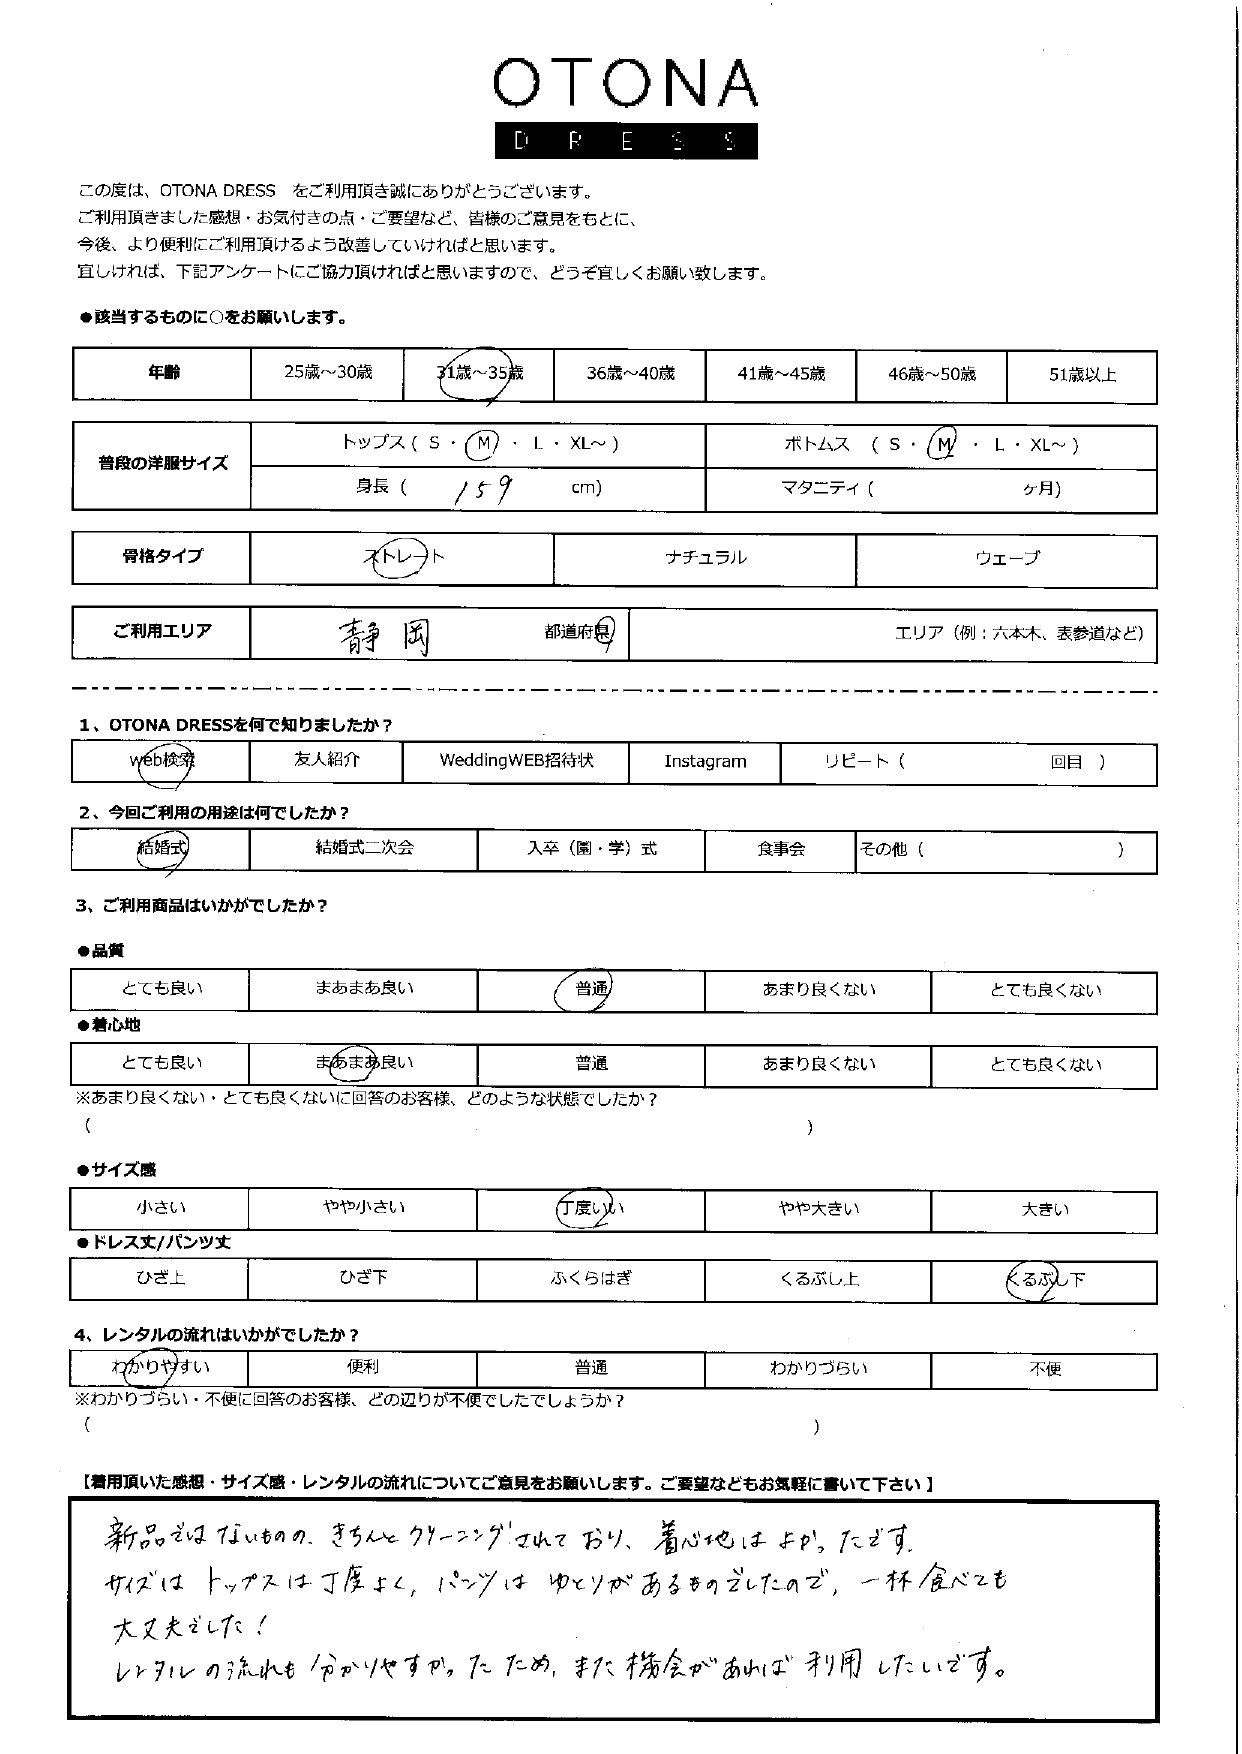 OTONA
DRESS
この度は、OTONA DRESS　をご利用頂き誠にありがとうございます。
ご利用頂きました感想・お気付きの点・ご要望など、皆様のご意見をもとに、
今後、より便利にご利用頂けるよう改善していければと思います。
宜しければ、下記アンケートにご協力頂ければと思いますので、どうぞ宜しくお願い致します。
●該当するものに○をお願いします。
年齢 25歳～30歳 31歳～35歳 36歳～40歳 41歳～45歳 46歳～50歳 51歳以上
普段の洋服サイズ トップス ( S ・ M ・ L ・ XL～ ) ボトムス ( S ・ M ・ L ・ XL～ )
身長 ( 159 cm) マタニティ ( ヶ月)
骨格タイプ ストレート ナチュラル ウェーブ
ご利用エリア 静岡 都道府県 エリア（例：六本木、表参道など）
1、OTONA DRESSを何で知りましたか？
web検索 友人紹介 WeddingWEB招待状 Instagram リピート ( 回目 )
2、今回ご利用の用途は何でしたか？
結婚式 結婚式二次会 入卒（園・学）式 食事会 その他 ( )
3、ご利用商品はいかがでしたか？
●品質
とても良い まあまあ良い 普通 あまり良くない とても良くない
●着心地
とても良い まあまあ良い 普通 あまり良くない とても良くない
※あまり良くない・とても良くないに回答のお客様、どのような状態でしたか？
( )
●サイズ感
小さい やや小さい 丁度いい やや大きい 大きい
●ドレス丈/パンツ丈
ひざ上 ひざ下 ふくらはぎ くるぶし上 くるぶし下
4、レンタルの流れはいかがでしたか？
わかりやすい 便利 普通 わかりづらい 不便
※わかりづらい・不便に回答のお客様、どの辺りが不便でしたでしょうか？
( )
【着用頂いた感想・サイズ感・レンタルの流れについてご意見をお願いします。ご要望などもお気軽に書いて下さい】
新品ではないものの、きちんとクリーニングされており、着心地はよかったです。
サイズはトップスは丁度よく、パンツはゆとりがあるものでしたので、一杯食べても
大丈夫でした！
レンタルの流れも分かりやすかったため、また機会があれば利用したいです。